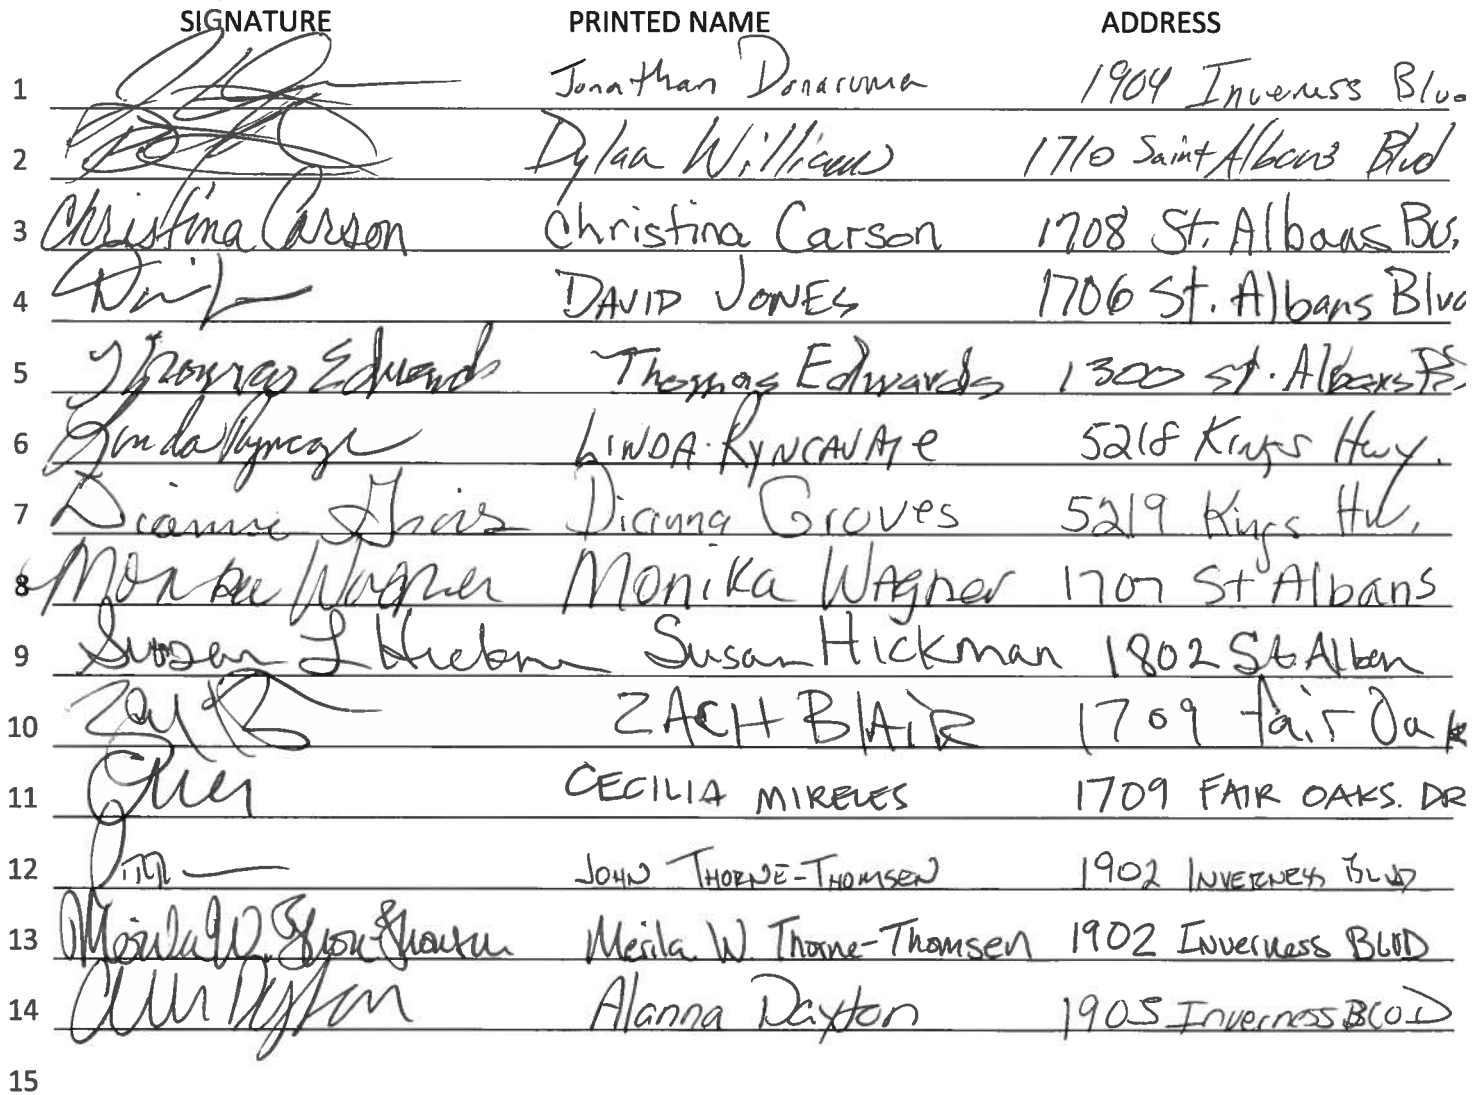 SIGNATURE PRINTED NAME ADDRESS
1 Jonathan Donaruma 1904 Inverness Blvd
2 Dylan Williams 1710 Saint Albans Blvd
3 Christina Carson Christina Carson 1708 St. Albans
4 DAVID JONES 1706 St. Albans Blvd
5 Thomas Edwards Thomas Edwards 1300 St. Albans
6 Linda LINDA 5218 Kings Hwy.
7 Dianna Groves 5219 Kings
8 Monika Wagner Monika WAgner 1707 St Albans
9 Susan L Hickman Susan Hickman 1802 St. Alban
10 ZACH BlAiR 1709 fair Oak
11 CECILIA MIRELES 1709 FAIR OAKS. DR
12 JOHN THORNE-THOMSEN 1902 INVERNESS BLVD
13 Merila W. Thorne-Thomsen Merila W. Thorne-Thomsen 1902 Inverness BLVD
14 Alanna Dayton 1905 Inverness BLVD
15